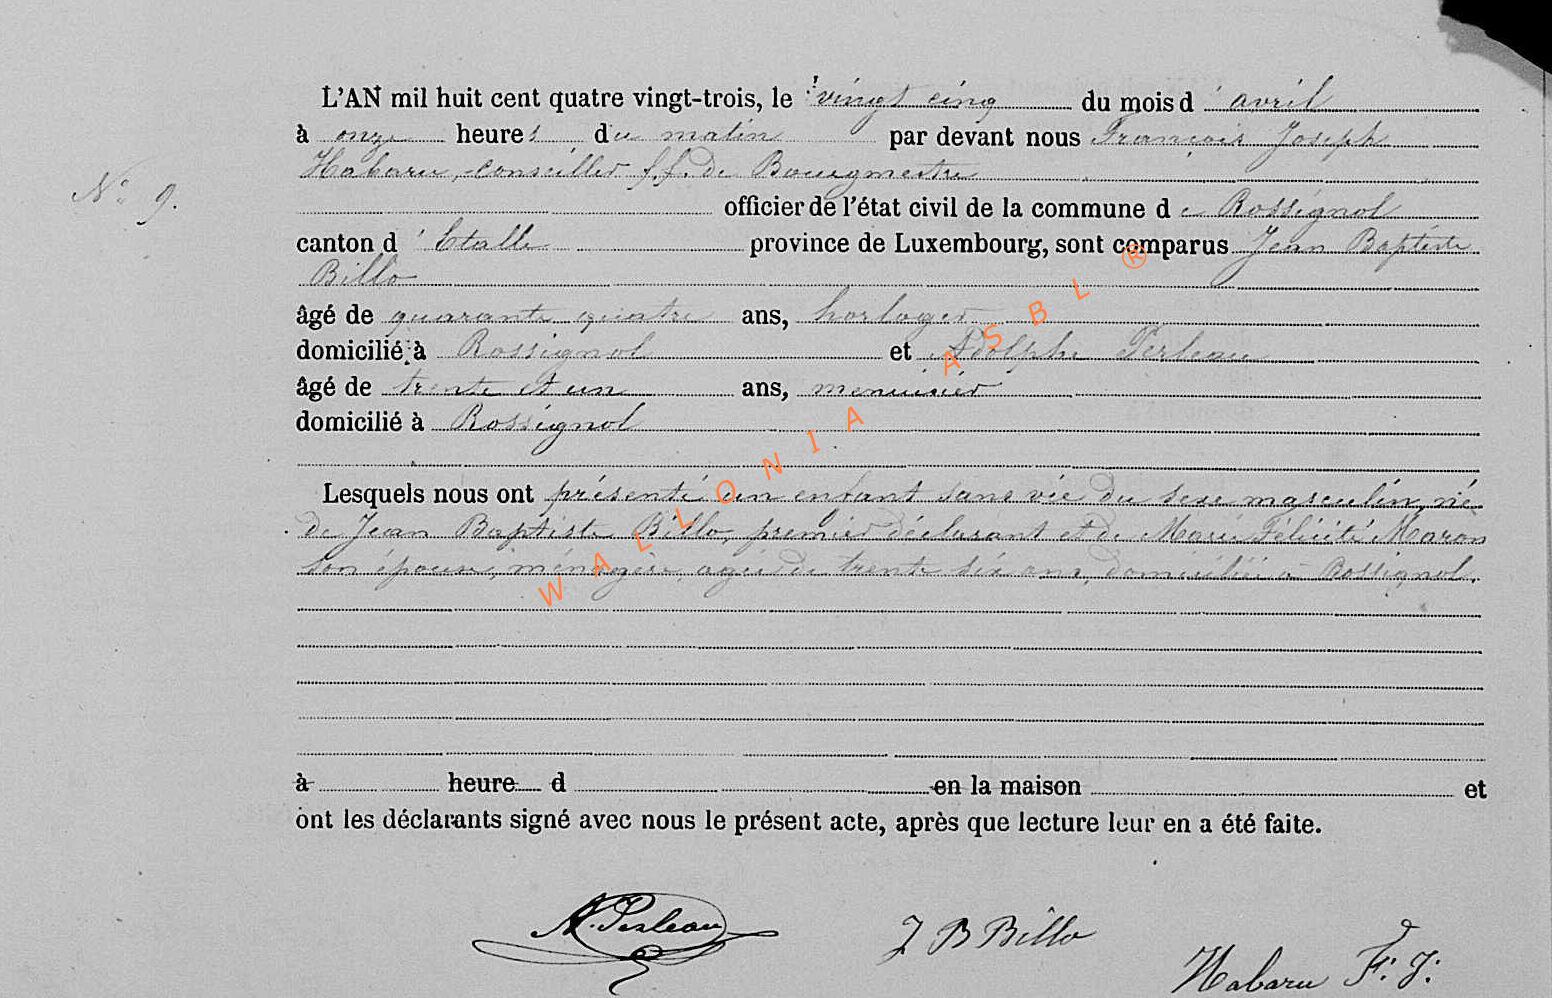 L'AN mil huit cent quatre vingt-trois, le vingt cinq du mois d'avril
à onze heures du matin par devant nous François Joseph
Habaru, conseiller f.f. de Bourgmestre
N° 9.
officier de l'état civil de la commune de Rossignol
canton d'Etalle province de Luxembourg, sont comparus Jean Baptiste
Billo
âgé de quarante quatre ans, horloger
domicilié à Rossignol et Adolphe Perleau
âgé de trente et un ans, menuisier
domicilié à Rossignol
Lesquels nous ont présenté un enfant sans vie du sexe masculin, né
de Jean Baptiste Billo, premier déclarant et de Marie Félicité Maron
son épouse, ménagère, agée de trente six ans, domiciliée à Rossignol.
à heure d en la maison et
ont les déclarants signé avec nous le présent acte, après que lecture leur en a été faite.
A. Perleau J B Billo Habaru F. J.
WALLONIA ASBL ®